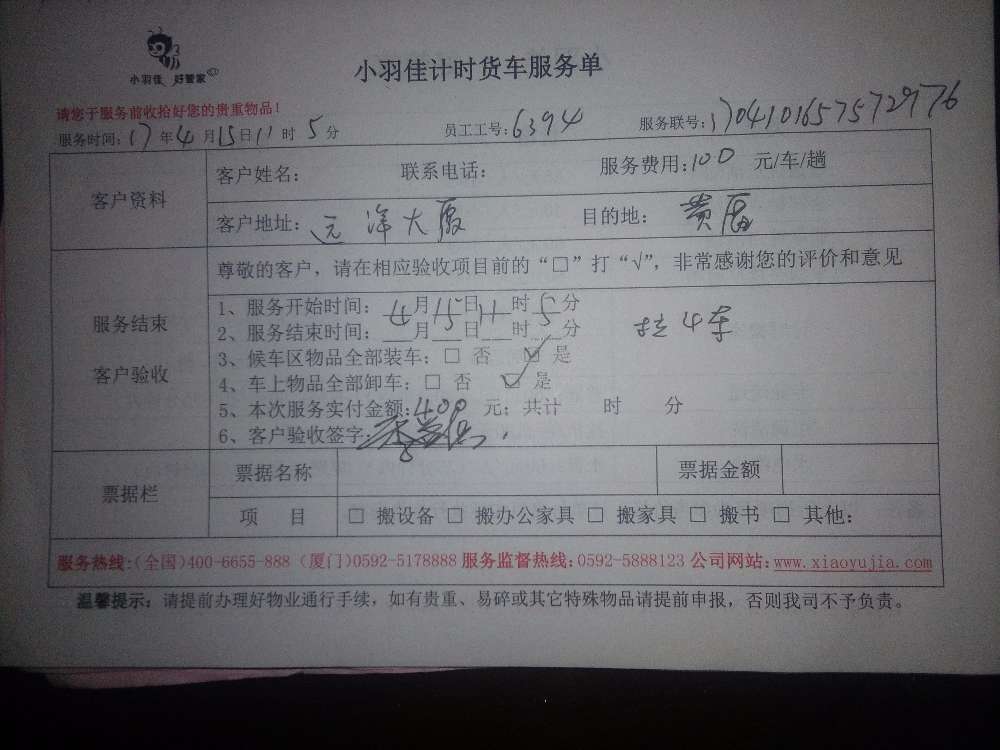 小羽佳 好管家
小羽佳计时货车服务单
请您于服务前收拾好您的贵重物品！
服务时间：17年4月15日11时5分 员工工号：6394 服务联号：17041016575729776
客户资料
客户姓名： 联系电话： 服务费用：100 元/车/趟
客户地址：远洋大厦 目的地：黄厝
服务结束
客户验收
尊敬的客户，请在相应验收项目前的“□”打“√”，非常感谢您的评价和意见
1、服务开始时间：4月15日11时5分
2、服务结束时间：__月__日__时__分 拉4车
3、候车区物品全部装车：□ 否 ☑ 是
4、车上物品全部卸车：□ 否 ☑ 是
5、本次服务实付金额：400 元；共计 时 分
6、客户验收签字：
票据栏
票据名称 票据金额
项 目 □ 搬设备 □ 搬办公家具 □ 搬家具 □ 搬书 □ 其他：
服务热线：（全国）400-6655-888（厦门）0592-5178888 服务监督热线：0592-5888123 公司网站：www.xiaoyujia.com
温馨提示：请提前办理好物业通行手续，如有贵重、易碎或其它特殊物品请提前申报，否则我司不予负责。